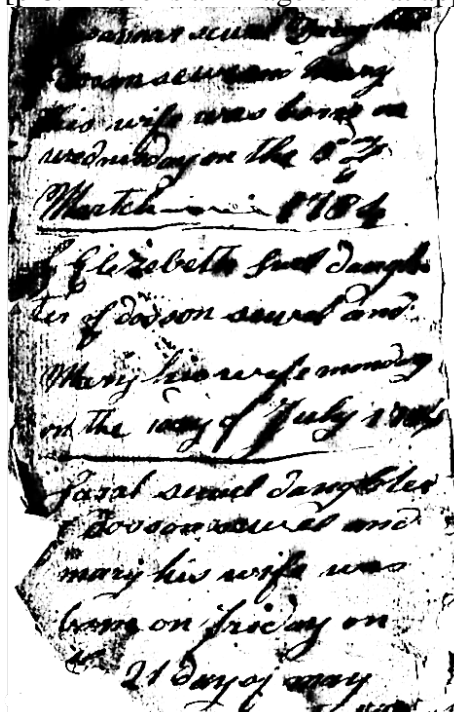 sewel Daughter
sewel and Mary
his wife was born on
wednesday on the 5
March 1784
Elizebeth Suel daugh
ter of dodson sewel and
Mary his wife monday
on the day of July
Sarah sewel daughter
dodson sewel and
mary his wife was
born on friday on
21 day of may